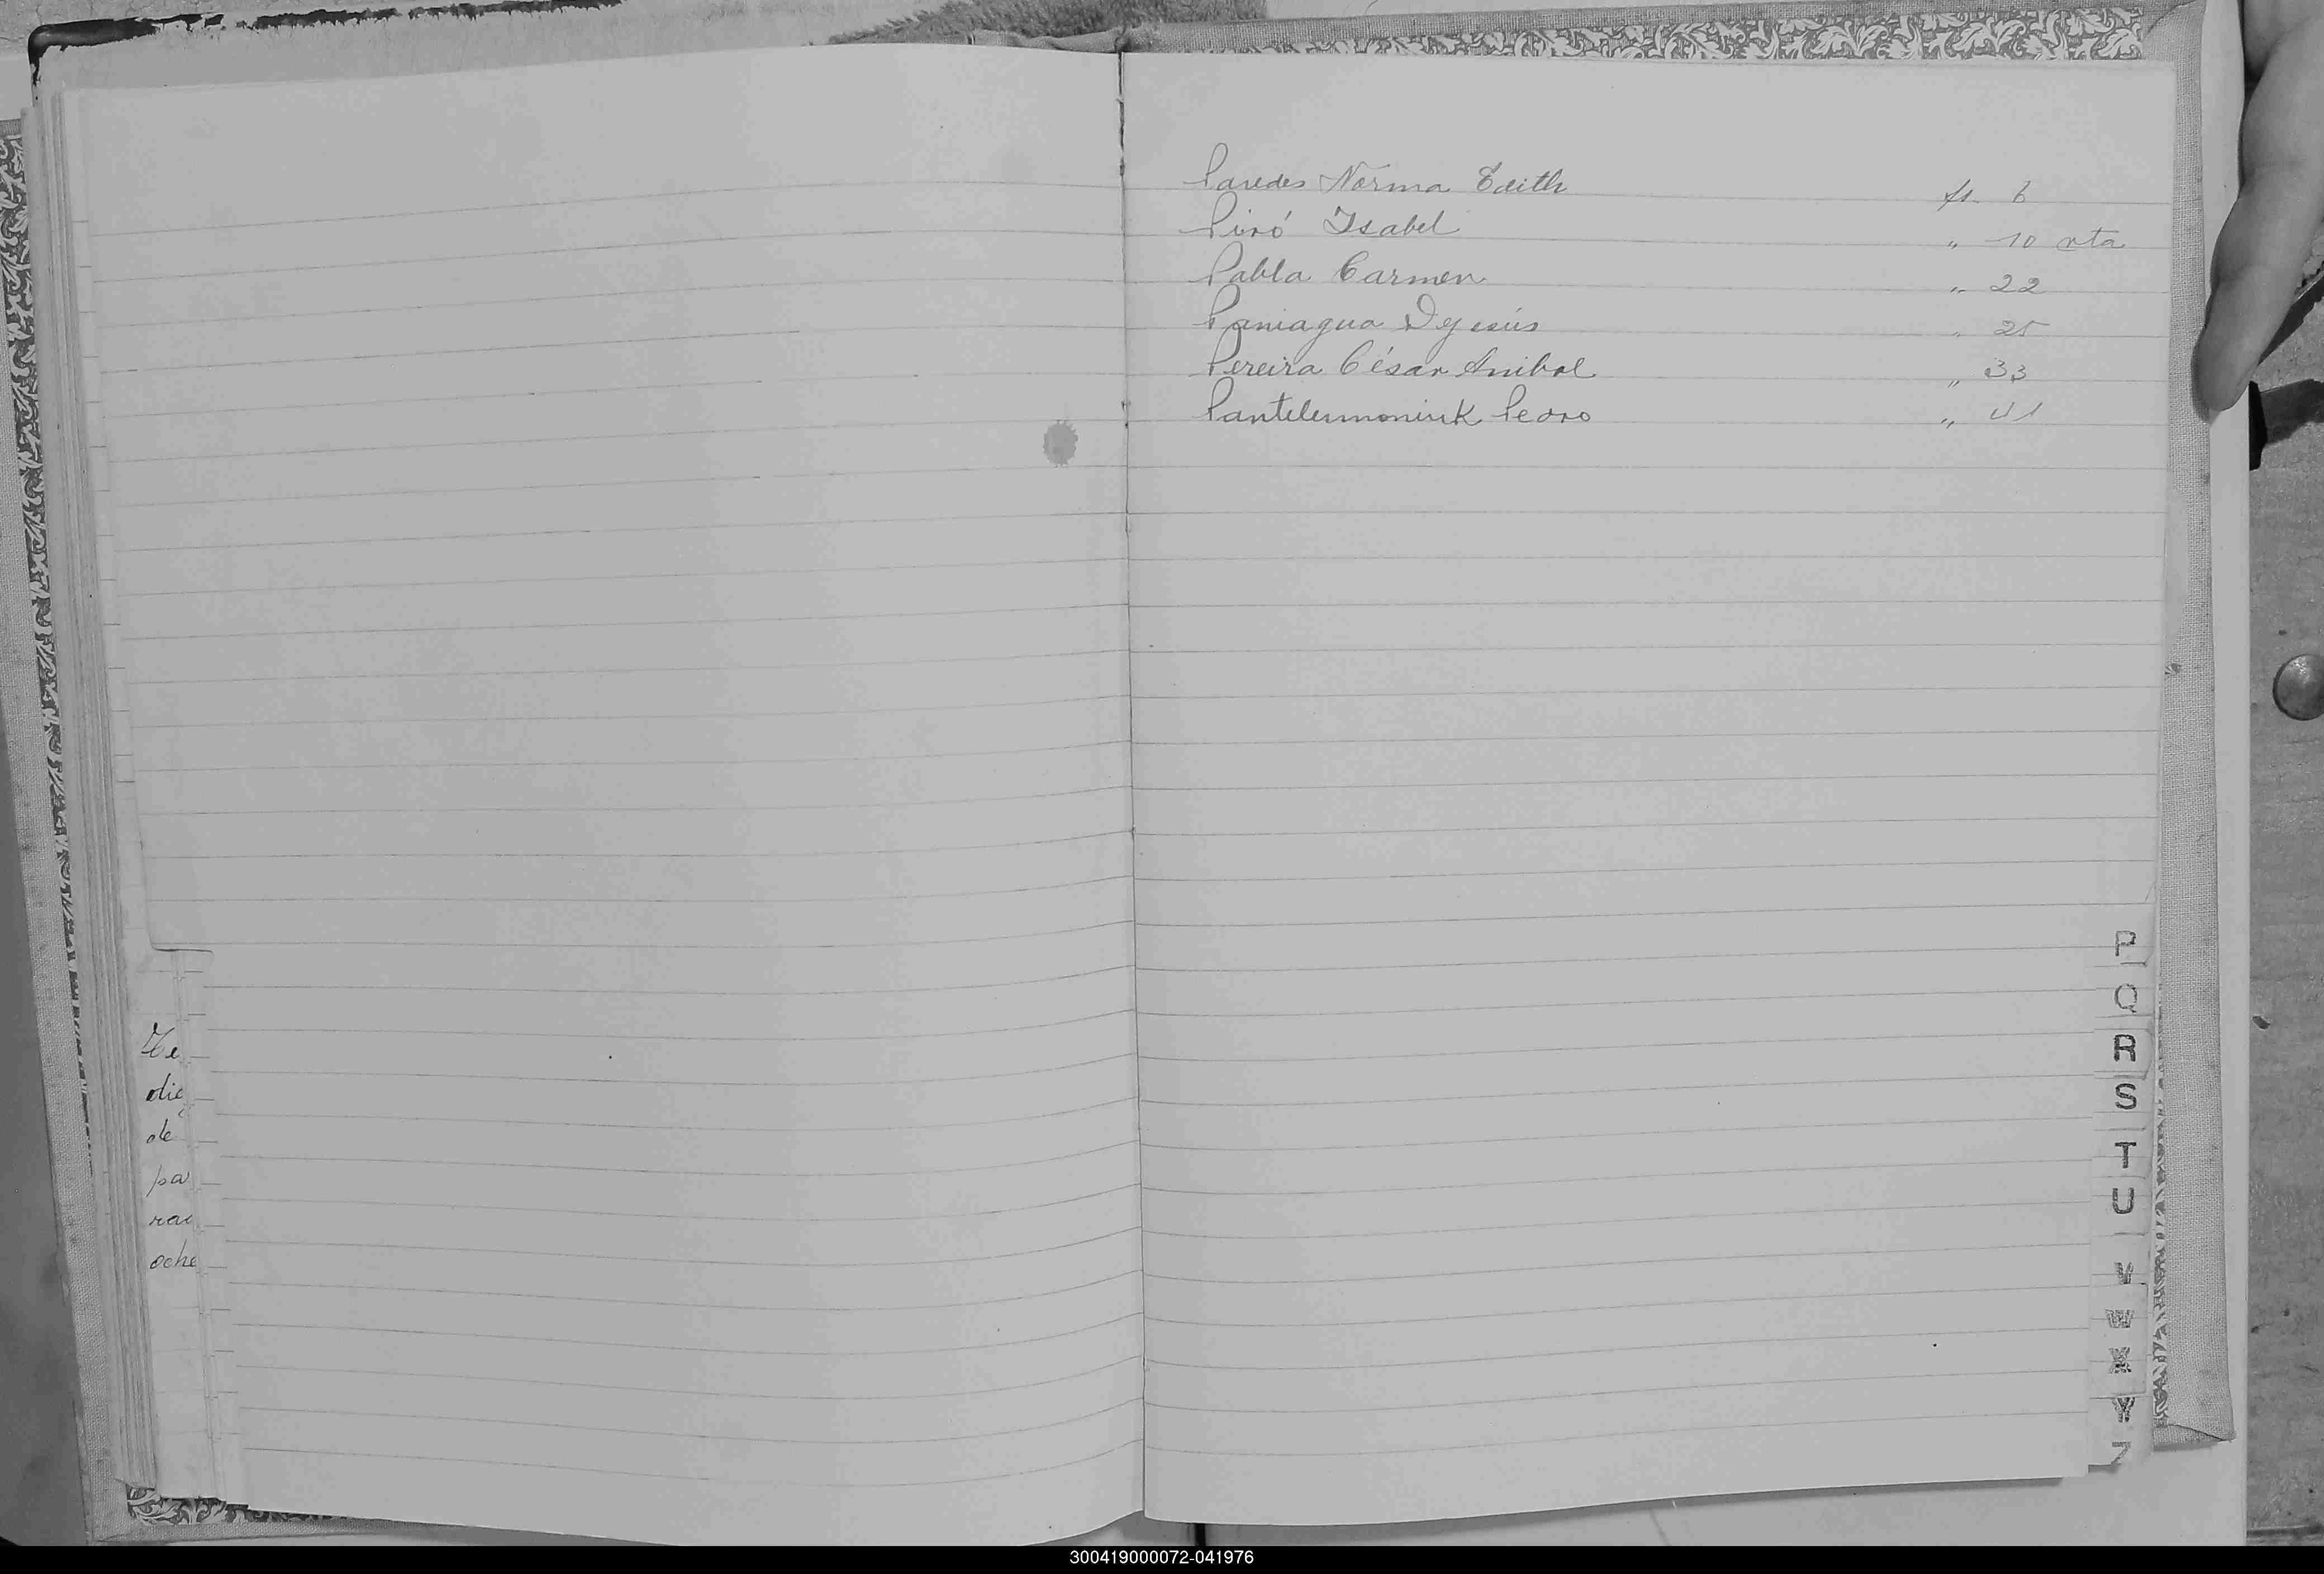 Paredes Norma Edith fs. 6
Piró Isabel " 10 vta
Pabla Carmen " 22
Paniagua Dejesús " 25
Pereira César Anibal " 33
Pantelemoniuk Pedro " 41
P
Q
R
S
T
U
V
W
X
Y
Z
de
pa
oche
300419000072-041976